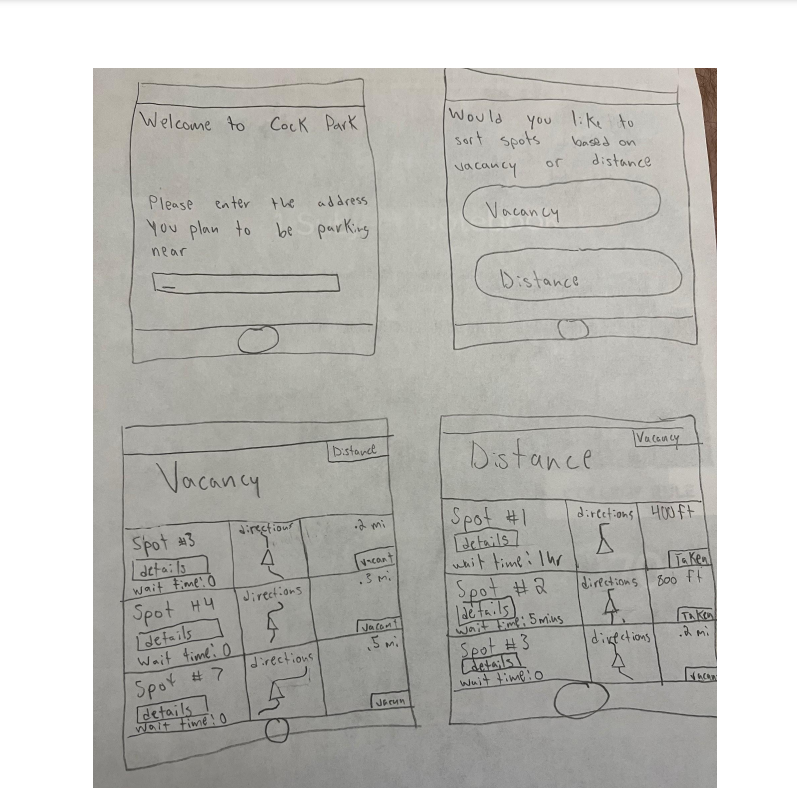 Welcome to Cock Park
Please enter the address
You plan to be parking
near
Would you like to
sort spots based on
vacancy or distance
Vacancy
Distance
Distance
Vacancy
Spot #3
details
wait time: 0
directions
.2 mi
vacant
Spot #4
details
Wait time: 0
directions
.3 mi
vacant
Spot #7
details
wait time: 0
directions
.5 mi
vacun
Vacancy
Distance
Spot #1
details
wait time: 1hr
directions
400 ft
Taken
Spot #2
details
wait time: 5mins
directions
800 ft
Taken
Spot #3
details
wait time: 0
directions
.2 mi
vacan